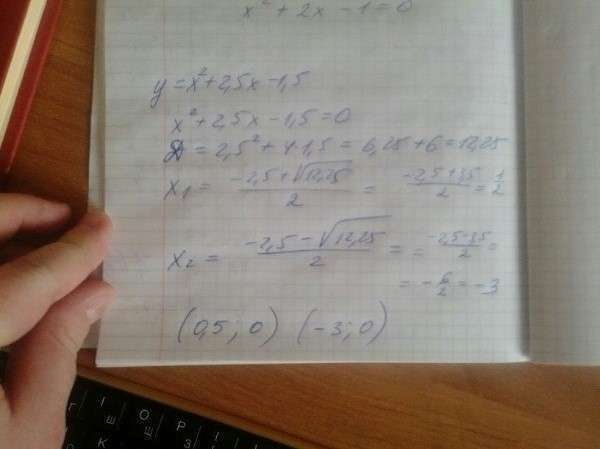 x² + 2x - 1 = 0
y = x² + 2,5x - 1,5
x² + 2,5x - 1,5 = 0
D = 2,5² + 4·1,5 = 6,25 + 6 = 12,25
x₁ = (-2,5 + √12,25)/2 = (-2,5 + 3,5)/2 = 1/2
x₂ = (-2,5 - √12,25)/2 = = (-2,5 - 3,5)/2 =
= -6/2 = -3
(0,5; 0) (-3; 0)